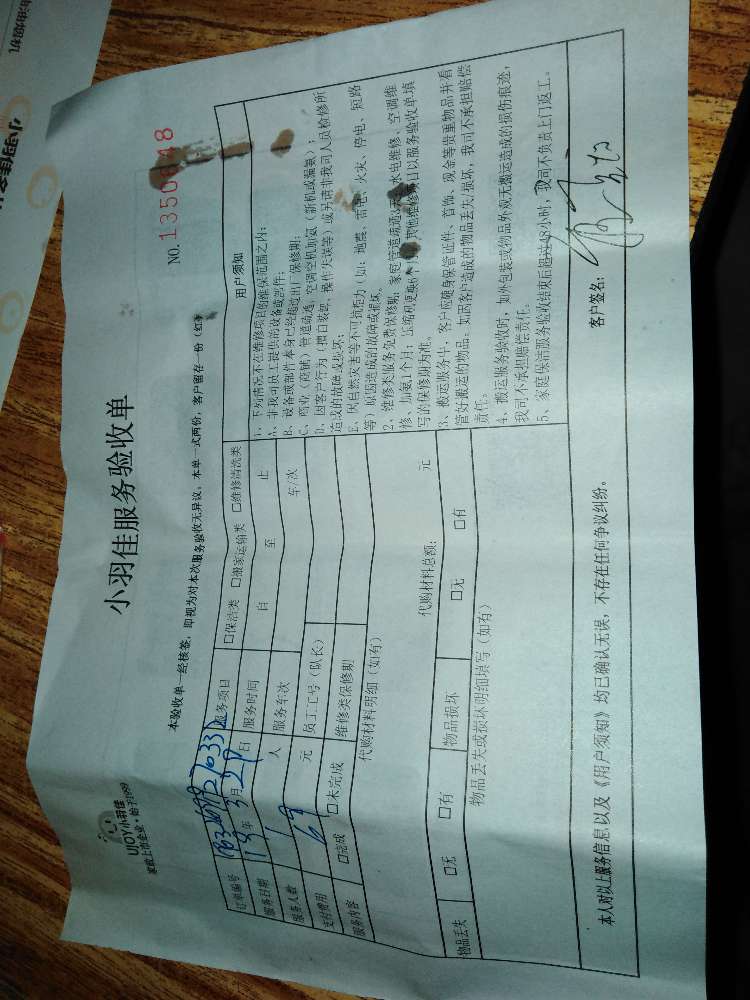 UJOY小羽佳
家政上市企业·始于1999
小羽佳服务验收单
NO.
本验收单一经核签,即视为对本次服务验收无异议。本单一式两份,客户留存一份
订单编号
服务项目 □保洁类 □搬家运输类 □维修清洗类
服务日期 年3月29日
服务时间 自 至 止
服务人数 1人
服务车次 车/次
支付费用 69元
员工工号(队长)
服务内容 □完成 □未完成
维修类保修期
代购材料明细(如有)
代购材料总额: 元
物品丢失 □无 □有
物品损坏 □无 □有
物品丢失或损坏明细填写(如有)
用户须知
1、下列情况不在维修项目的维保范围之内:
A、非我司员工提供的设备或部件;
B、设备或部件本身已经超过出厂保修期;
C、商业(商铺)管道疏通、空调空机加氨(新机或漏氨);
D、因客户行为(擅自装卸、操作失误等)或另请非我司人员检修所
造成的故障或损坏;
E、因自然灾害等不可抗拒力(如:地震、雷电、火灾、停电、短路
等)原因造成的故障或损坏。
2、维修类服务免费保修期:家庭管道疏通 水电维修、空调维
修、加氨1个月;压缩机更换 其他维修项目以服务验收单填
写的保修期为准。
3、搬运服务中,客户应随身保管证件、首饰、现金等贵重物品并看
管好搬运的物品。如因客户造成的物品丢失/损坏,我司不承担赔偿
责任。
4、搬运服务验收时,如外包装或物品外观无搬运造成的损伤痕迹,
我司不承担赔偿责任。
5、家庭保洁服务验收结束后超过48小时,我司不负责上门返工。
本人对以上服务信息以及《用户须知》均已确认无误,不存在任何争议纠纷。
客户签名: